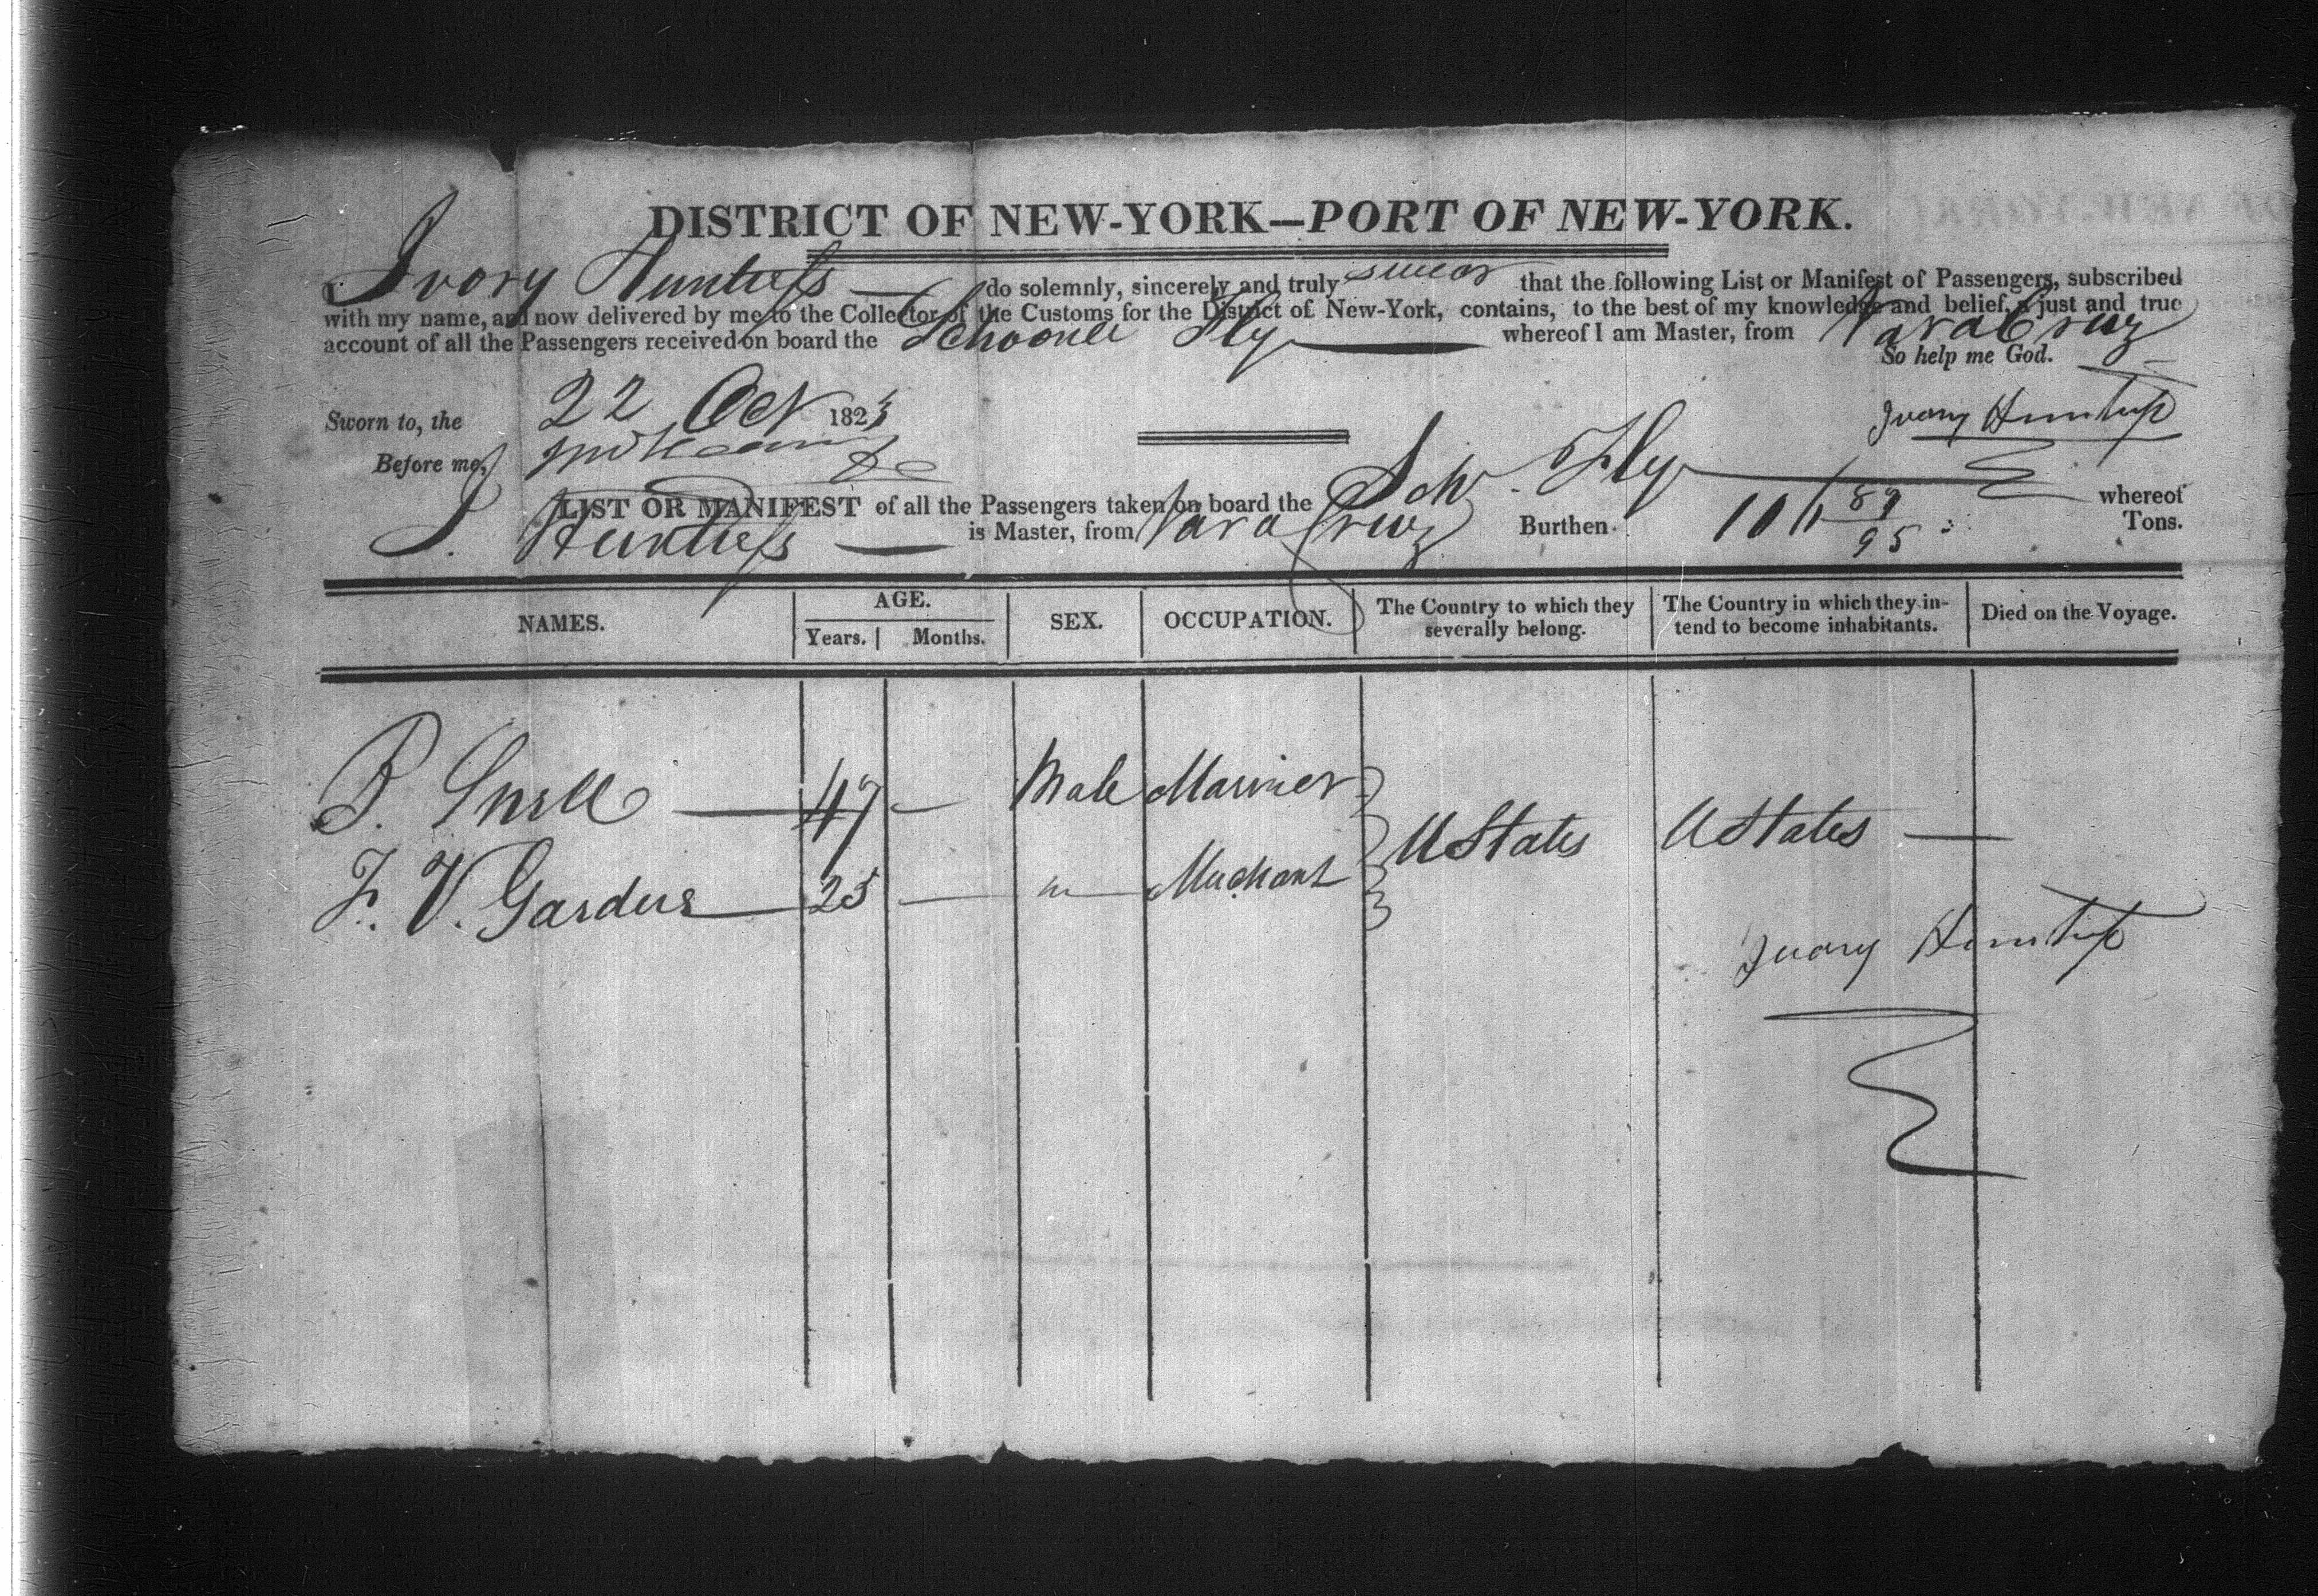 DISTRICT OF NEW-YORK—PORT OF NEW-YORK.
I Ivory Huntress — do solemnly, sincerely and truly swear that the following List or Manifest of Passengers, subscribed
with my name, and now delivered by me to the Collector of the Customs for the District of New-York, contains, to the best of my knowledge and belief, a just and true
account of all the Passengers received on board the Schooner Fly — whereof I am Master, from Vara Cruz
So help me God.
Sworn to, the 22 Oct 1823
Ivory Huntress
Before me,
LIST OR MANIFEST of all the Passengers taken on board the Schr. Fly — whereof
I. Huntress — is Master, from Vara Cruz Burthen 101 89/95 Tons.
NAMES. AGE. Years. Months. SEX. OCCUPATION. The Country to which they severally belong. The Country in which they intend to become inhabitants. Died on the Voyage.
P. Snell — 47 — Male Mariner
UStates UStates —
F. V. Gardner — 25 — " — Merchant
Ivory Huntress